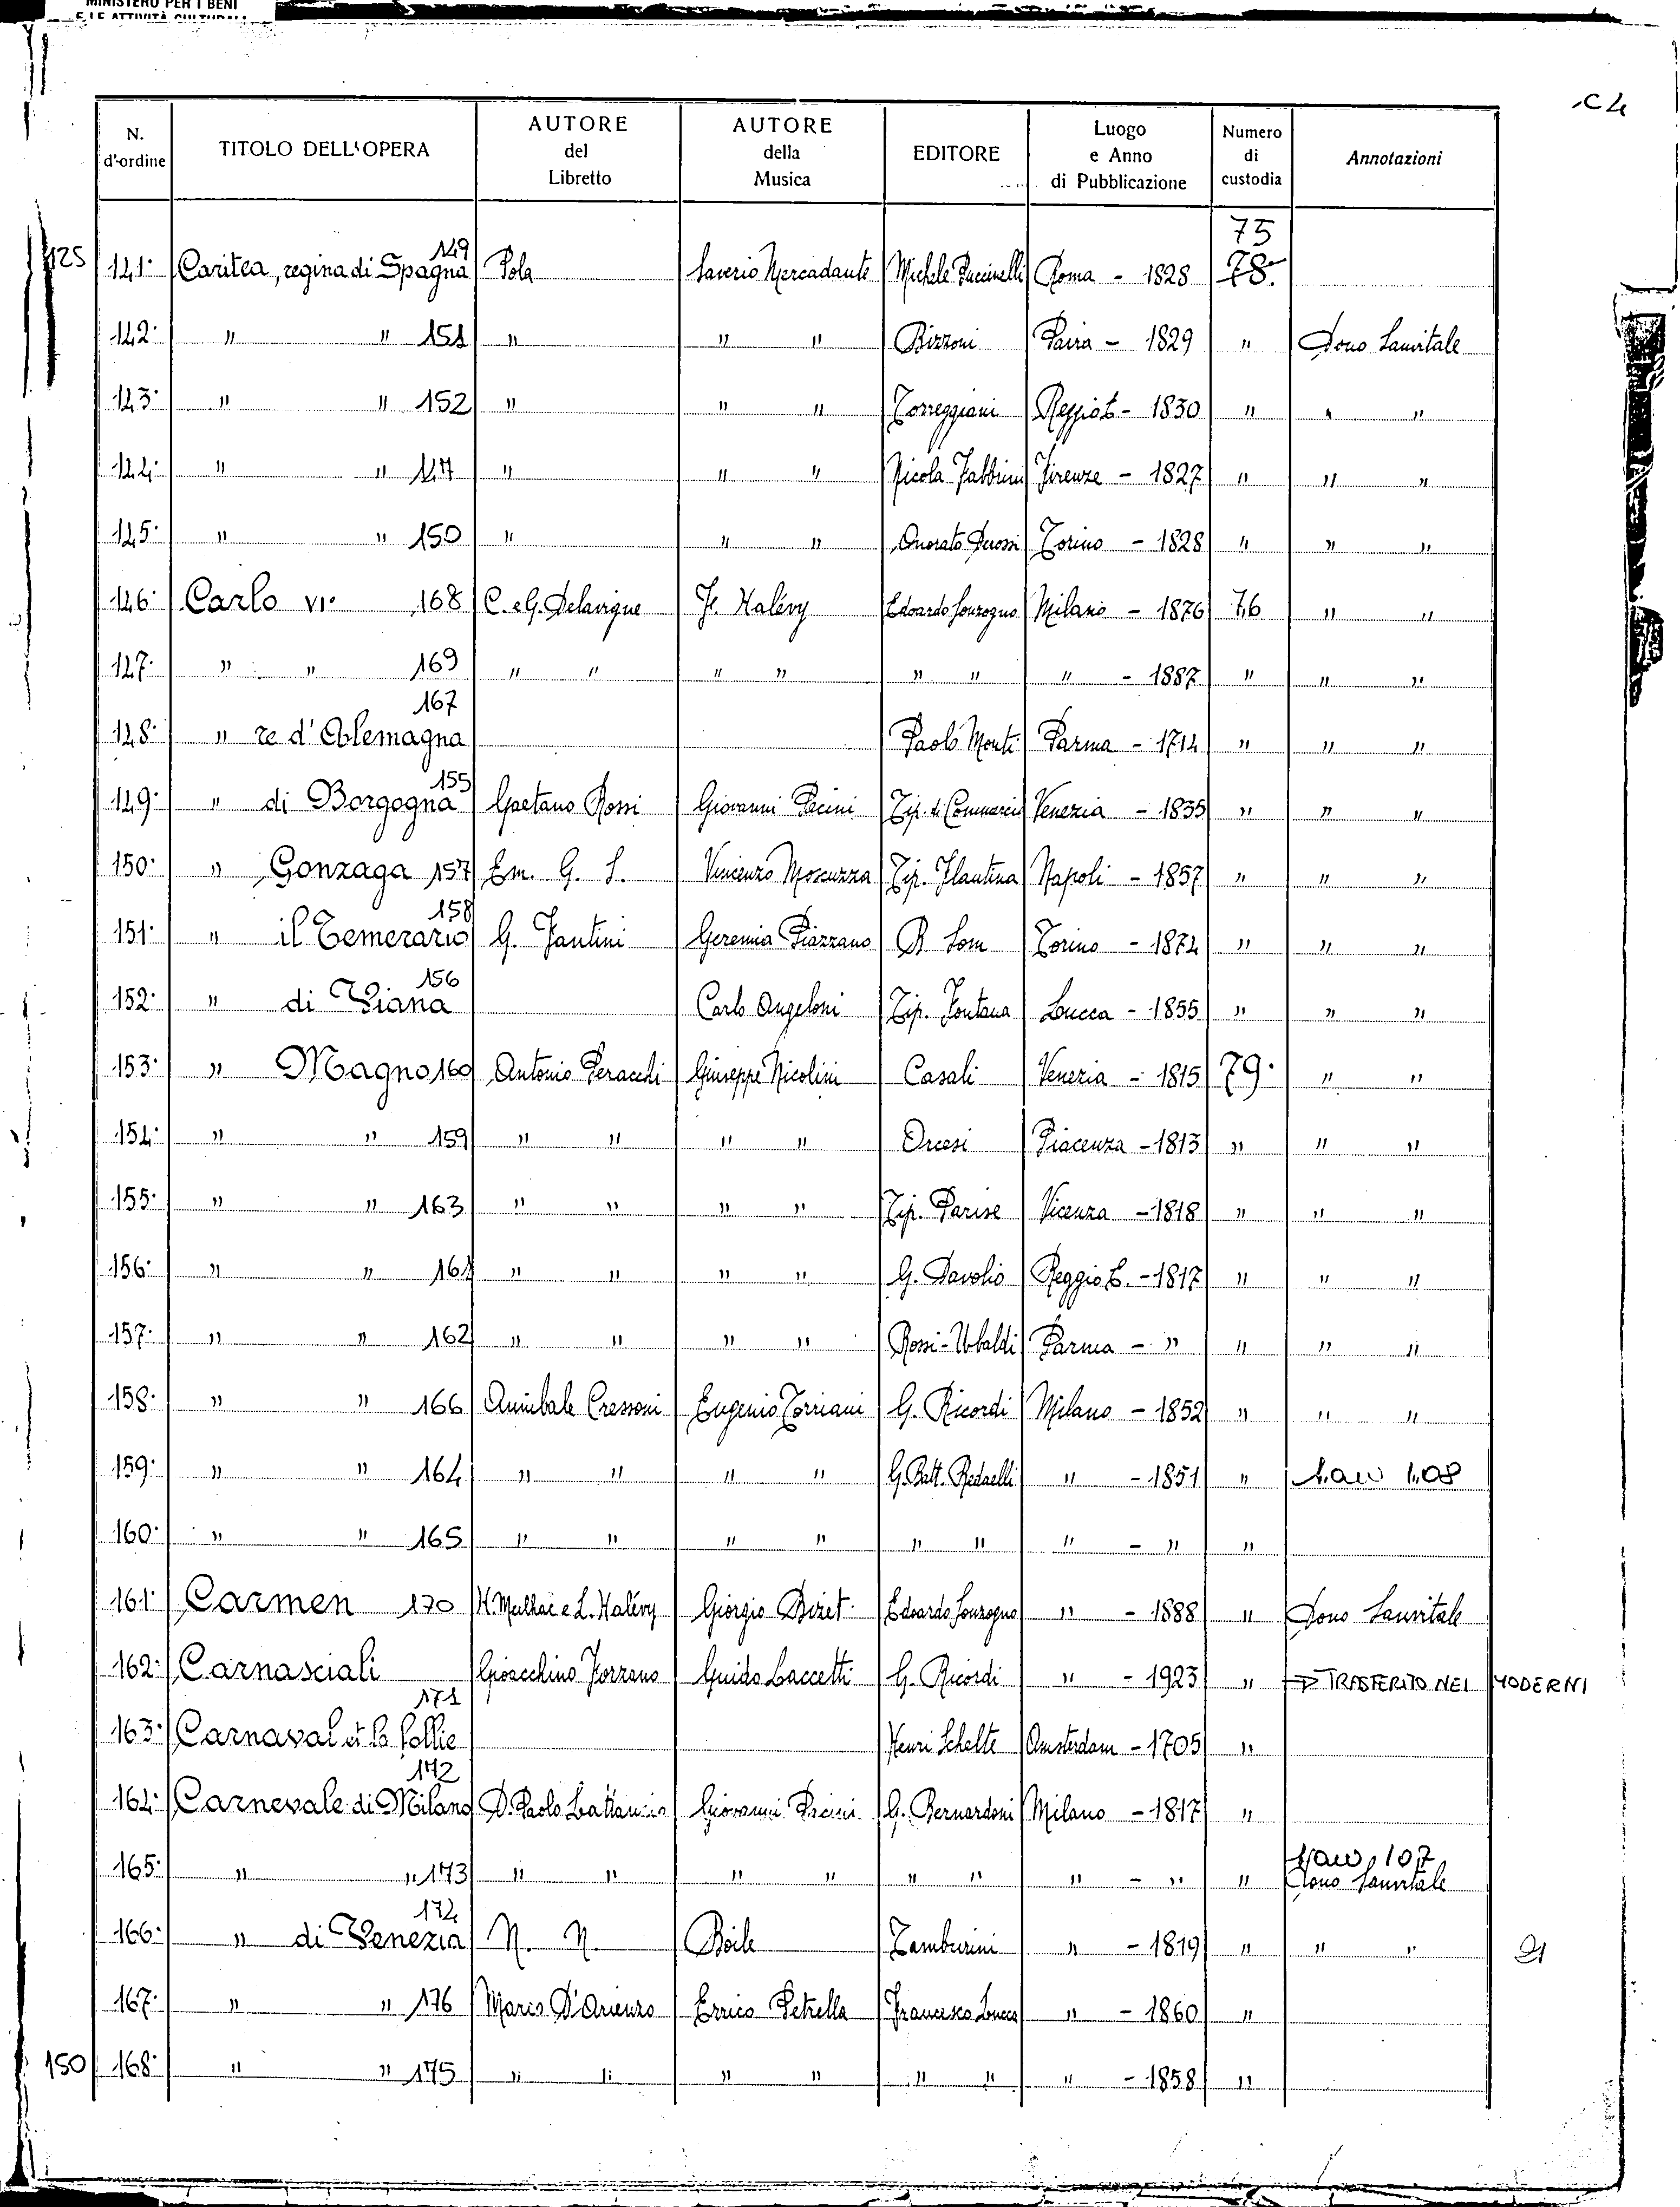 MINISTERO PER I BENI
E LE ATTIVITÀ CULTURALI
C4
N. d'ordine TITOLO DELL'OPERA AUTORE del Libretto AUTORE della Musica EDITORE Luogo e Anno di Pubblicazione Numero di custodia Annotazioni
125 141· Caritea, regina di Spagna 149 Pola Saverio Mercadante Michele Puccinelli Roma - 1828 75 78·
142· " " 151 " " " Bizzoni Pavia - 1829 " Dono Sanvitale
143· " " 152 " " " Torreggiani Reggio E - 1830 " " "
144· " " 147 " " " Nicola Fabbrini Firenze - 1827 " " "
145· " " 150 " " " Onorato Derossi Torino - 1828 " " "
146· Carlo VI· 168 C. e G. Delavigne F. Halévy Edoardo Sonzogno Milano - 1876 76 " "
147· " " 169 " " " " " " " - 1887 " " "
148· " re d'Alemagna 167 Paolo Monti Parma - 1714 " " "
149· " di Borgogna 155 Gaetano Rossi Giovanni Pacini Tip. di Commercio Venezia - 1835 " " "
150· " Gonzaga 157 Em. G. S. Vincenzo Moscuzza Tip. Flautina Napoli - 1857 " " "
151· " il Temerario 158 G. Fantini Geremia Piazzano Torino - 1874 " " "
152· " di Viana 156 Carlo Angeloni Tip. Fontana Lucca - 1855 " " "
153· " Magno 160 Antonio Peracchi Giuseppe Nicolini Casali Venezia - 1815 79· " "
154· " " 159 " " " " Orcesi Piacenza - 1813 " " "
155· " " 163 " " " " Tip. Parise Vicenza - 1818 " " "
156· " " 161 " " " " G. Davolio Reggio E. - 1817 " " "
157· " " 162 " " " " Rossi-Ubaldi Parma - " " " "
158· " " 166 Annibale Cressoni Eugenio Torriani G. Ricordi Milano - 1852 " " "
159· " " 164 " " " " G. Batt. Redaelli " - 1851 "
160· " " 165 " " " " " " " - " "
161· Carmen 170 H. Meilhac e L. Halévy Giorgio Bizet Edoardo Sonzogno " - 1888 " Dono Sanvitale
162· Carnasciali Gioacchino Forzano Guido Laccetti G. Ricordi " - 1923 " TRASFERITO NEI MODERNI
163· Carnaval et la follie 171 Henri Schelte Amsterdam - 1705 "
164· Carnevale di Milano 172 D. Paolo Lattanzio Giovanni Pacini G. Bernardoni Milano - 1817 "
165· " " 173 " " " " " " " - " " Dono Sanvitale
166· " di Venezia 174 N. N. Boile Tamburini " - 1819 " " "
167· " " 176 Marco D'Arienzo Errico Petrella Francesco Lucca " - 1860 "
150 168· " " 175 " " " " " " " - 1858 "